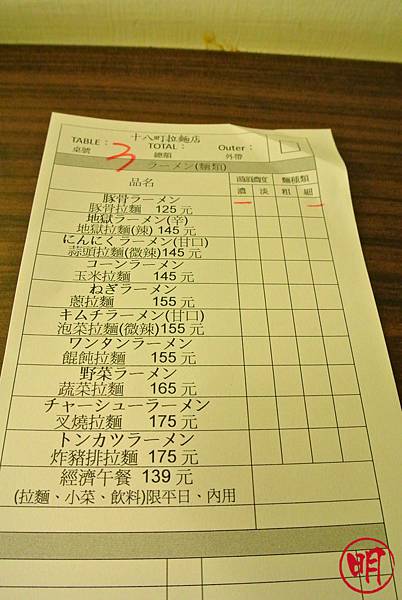 十八町拉麵店
TABLE： TOTAL： Outer：
桌號 3 總額 外帶
ラーメン(麵類)
品名 湯頭濃度 麵種類
濃 淡 粗 細
豚骨ラーメン
豚骨拉麵 125 元
地獄ラーメン(辛)
地獄拉麵(辣) 145 元
にんにくラーメン(甘口)
蒜頭拉麵(微辣) 145 元
コーンラーメン
玉米拉麵 145 元
ねぎラーメン
蔥拉麵 155 元
キムチラーメン(甘口)
泡菜拉麵(微辣)155 元
ワンタンラーメン
餛飩拉麵 155 元
野菜ラーメン
蔬菜拉麵 165 元
チャーシューラーメン
叉燒拉麵 175 元
トンカツラーメン
炸豬排拉麵 175 元
經濟午餐 139 元
(拉麵、小菜、飲料)限平日、內用
明